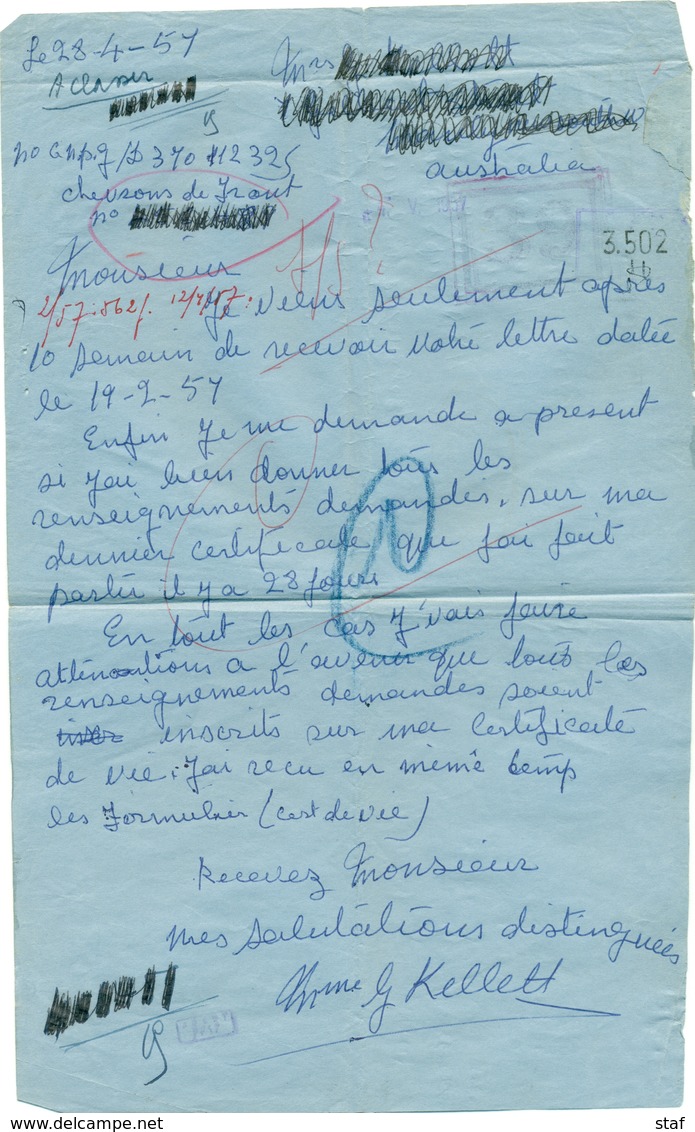 Le 28-4-57
A classer
Mrs
no C.n.p.g/D 370 412 325
australia
chevrons de Front
no
3.502
Monsieur
2/57.562/. 12/4/57.
Je viens seulement après
10 semain de recevoir votre lettre datée
le 19-2-57
Enfin je me demande a present
si j'ai bien donner tous les
renseignements demandés, sur ma
dernier certificate que j'ai fait
partir il y a 28 jours
En tout les cas j'vais faire
attentions a l'avenir que touts les
renseignements demandes soient
inscrits sur ma certificate
de vie, j'ai recu en même temp
les Formulier (cert de vie)
Recevez Monsieur
mes salutations distinguées
Mme G Kellett
staf